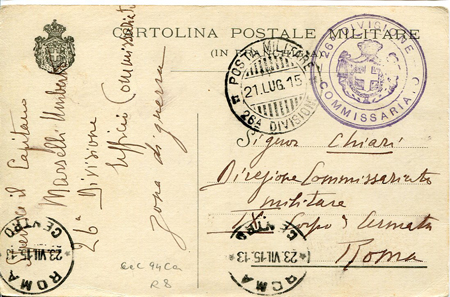 CARTOLINA POSTALE MILITARE
(IN FRANCHIGIA)
POSTA MILITARE
21.LUG.15
26ª DIVISIONE
26ª DIVISIONE
COMMISSARIATO
il Capitano
Masselli Umberto
26ª Divisione
Ufficio Commissariato
zona di guerra
Signor Chiari
Direzione Commissariato
militare
IX Corpo d'Armata
Roma
ROMA
23.VII.15-13
CENTRO
ROMA
23.VII.15-13
CENTRO
R8